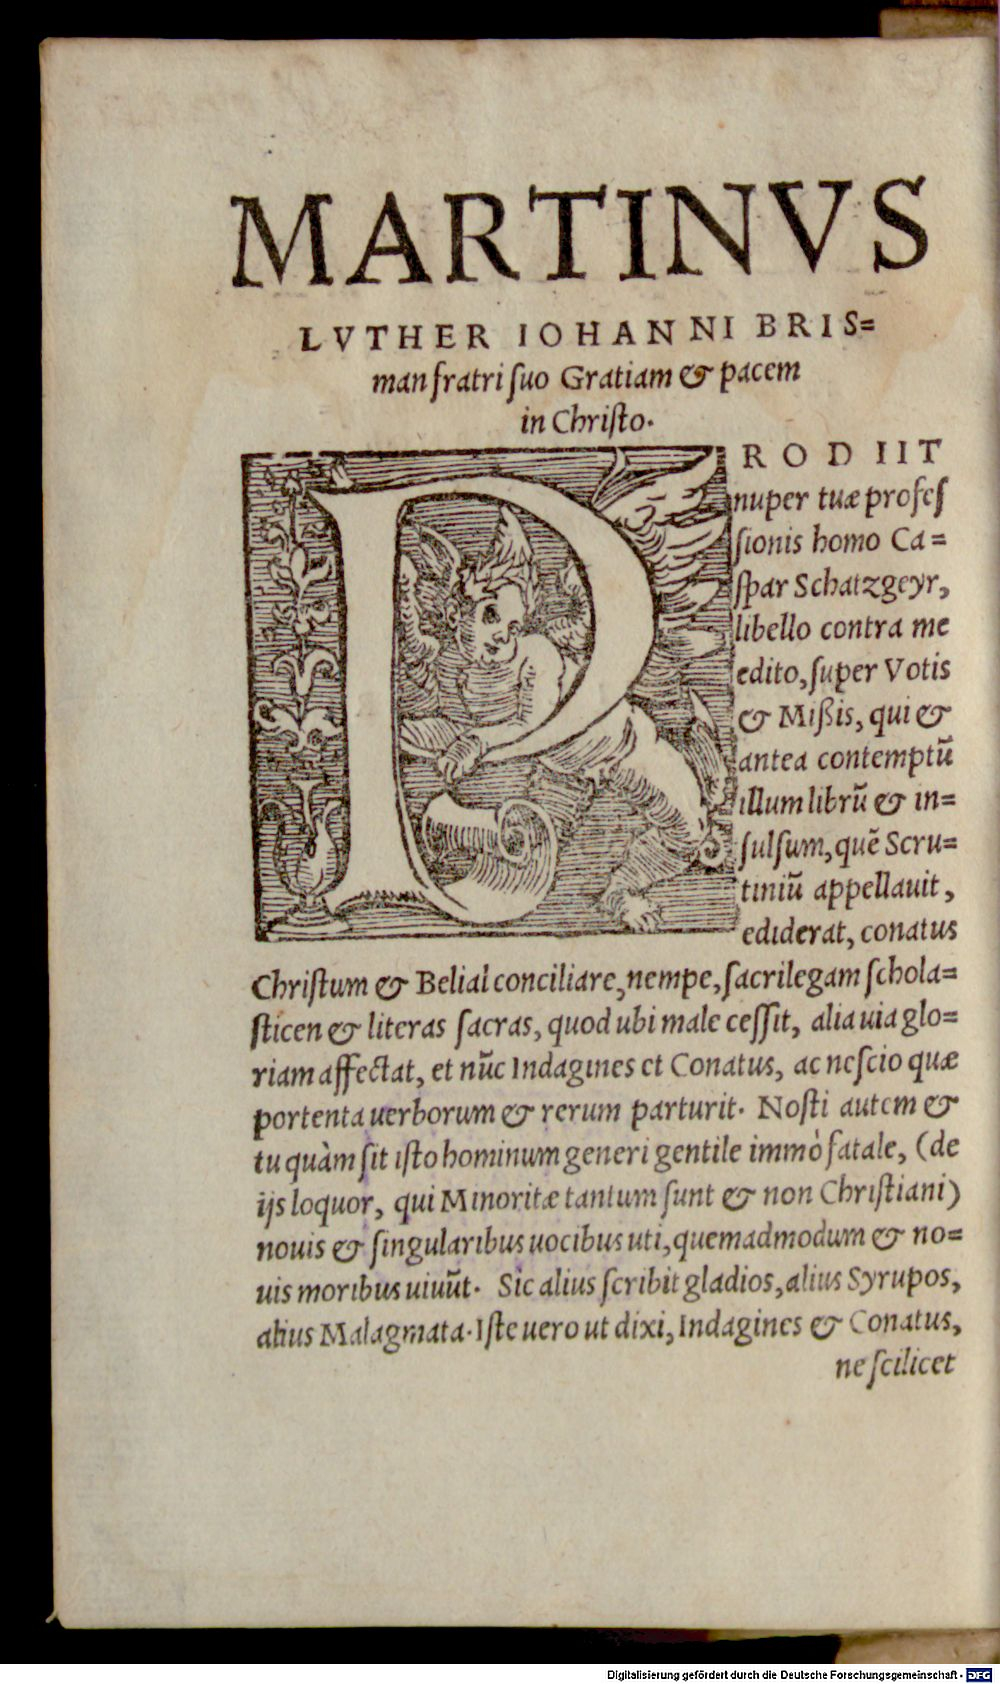 MARTINVS
LVTHER IOHANNI BRIS=
man fratri ſuo Gratiam & pacem
in Chriſto.
PRODIIT
nuper tuæ profeſ
ſionis homo Ca=
ſpar Schatzgeyr,
libello contra me
edito, ſuper Votis
& Mißis, qui &
antea contemptū
illum librū & in=
ſulſum, quē Scru=
tiniū appellauit,
ediderat, conatus
Chriſtum & Belial conciliare, nempe, ſacrilegam ſchola=
ſticen & literas ſacras, quod ubi male ceſſit, alia uia glo=
riam affectat, et nūc Indagines et Conatus, ac neſcio quæ
portenta uerborum & rerum parturit. Noſti autem &
tu quàm ſit iſto hominum generi gentile immò fatale, (de
ijs loquor, qui Minoritæ tantum ſunt & non Chriſtiani)
nouis & ſingularibus uocibus uti, quemadmodum & no=
uis moribus uiuūt. Sic alius ſcribit gladios, alius Syrupos,
alius Malagmata. Iſte uero ut dixi, Indagines & Conatus,
ne ſcilicet
Digitalisierung gefördert durch die Deutsche Forschungsgemeinschaft - DFG